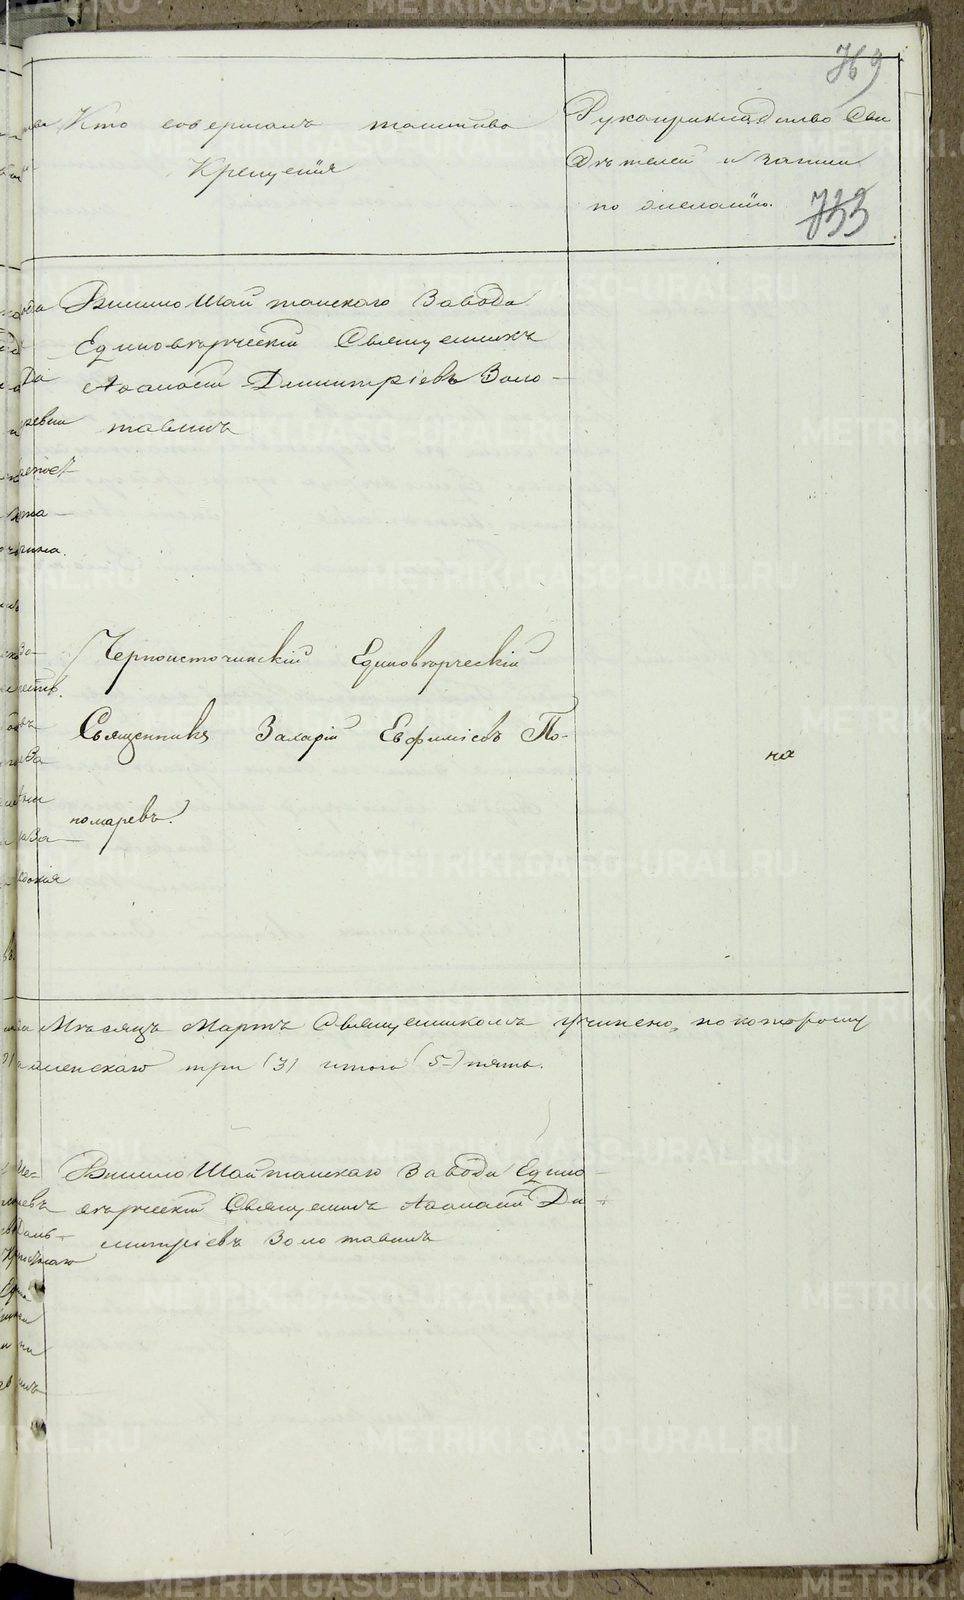 769
Кто совершалъ таинство
Крещенія
Рукоприкладство Сви
дѣтелей и записи
по желанію.
733
Висимо Шайтанскаго Завода
Единовѣрческій Священникъ
Аѳанасій Димитріевъ Золо-
тавинъ
Черноисточинскій Единовѣрческій
Священникъ Захарій Евфиміевъ По-
номаревъ.
на
Мѣсяцъ Мартъ Священникомъ учинено, по которому
три (3) итого (5) пять.
Висимо Шайтанскаго Завода Едино-
вѣрческій Священникъ Аѳанасій Ди-
митріевъ Золотавинъ